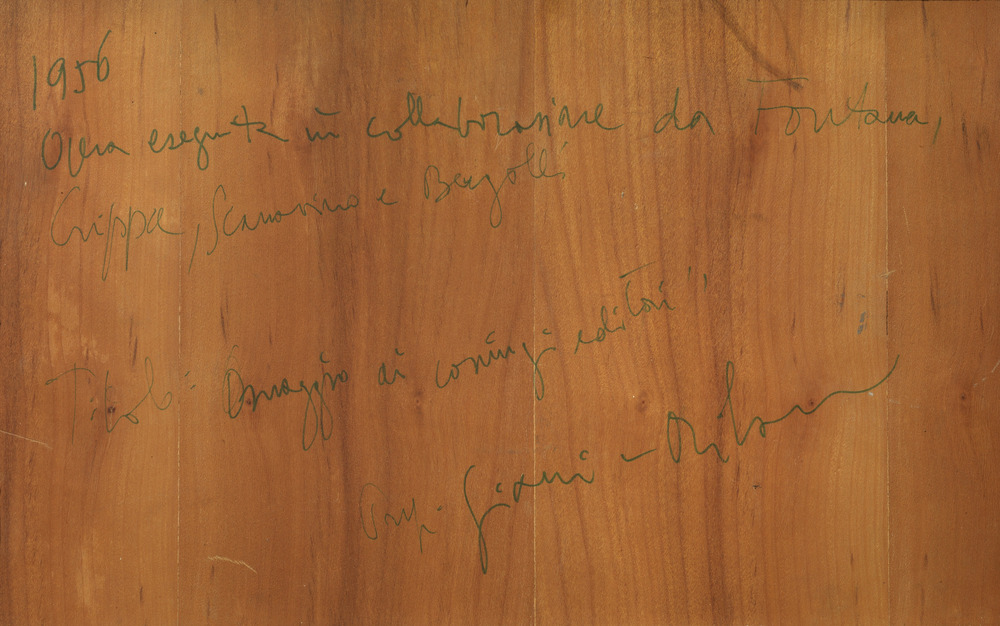 1956
Opera eseguita in collaborazione da Fontana,
Crippa, Scanavino e Bergolli
Titolo: Omaggio ai coniugi editori"
Prop. Gianni